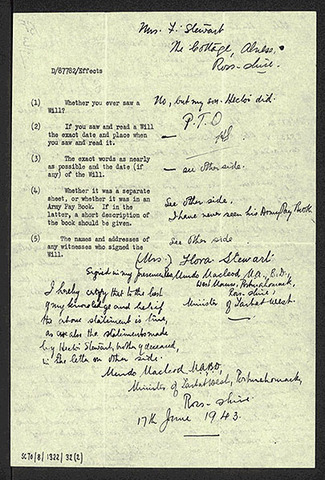 Mrs. F. Stewart
The Cottage, Alness,
Ross-shire.
D/67782/Effects
(1) Whether you ever saw a Will?
No, but my son Hector did.
(2) If you saw and read a Will the exact date and place when you saw and read it.
— P.T.O
HS
(3) The exact words as nearly as possible and the date (if any) of the Will.
— see other side.
(4) Whether it was a separate sheet, or whether it was in an Army Pay Book. If in the latter, a short description of the book should be given.
See other side.
I have never seen his Army Pay Book.
(5) The names and addresses of any witnesses who signed the Will.
See other side
(Mrs.) Flora Stewart
Signed in my presence, Mundo Macleod M.A., B.D.,
West Manse, Portmahomack,
Ross-shire.
Minister of Tarbat West.
I hereby certify that to the best
of my knowledge and belief
the above statement is true,
as are also the statements made
by Hector Stewart, brother of deceased,
in the letter on other side.
Mundo Macleod M.A., B.D.,
Minister of Tarbat West, Portmahomack,
Ross-shire
17th June 1943.
SC70/8/1322/32(2)